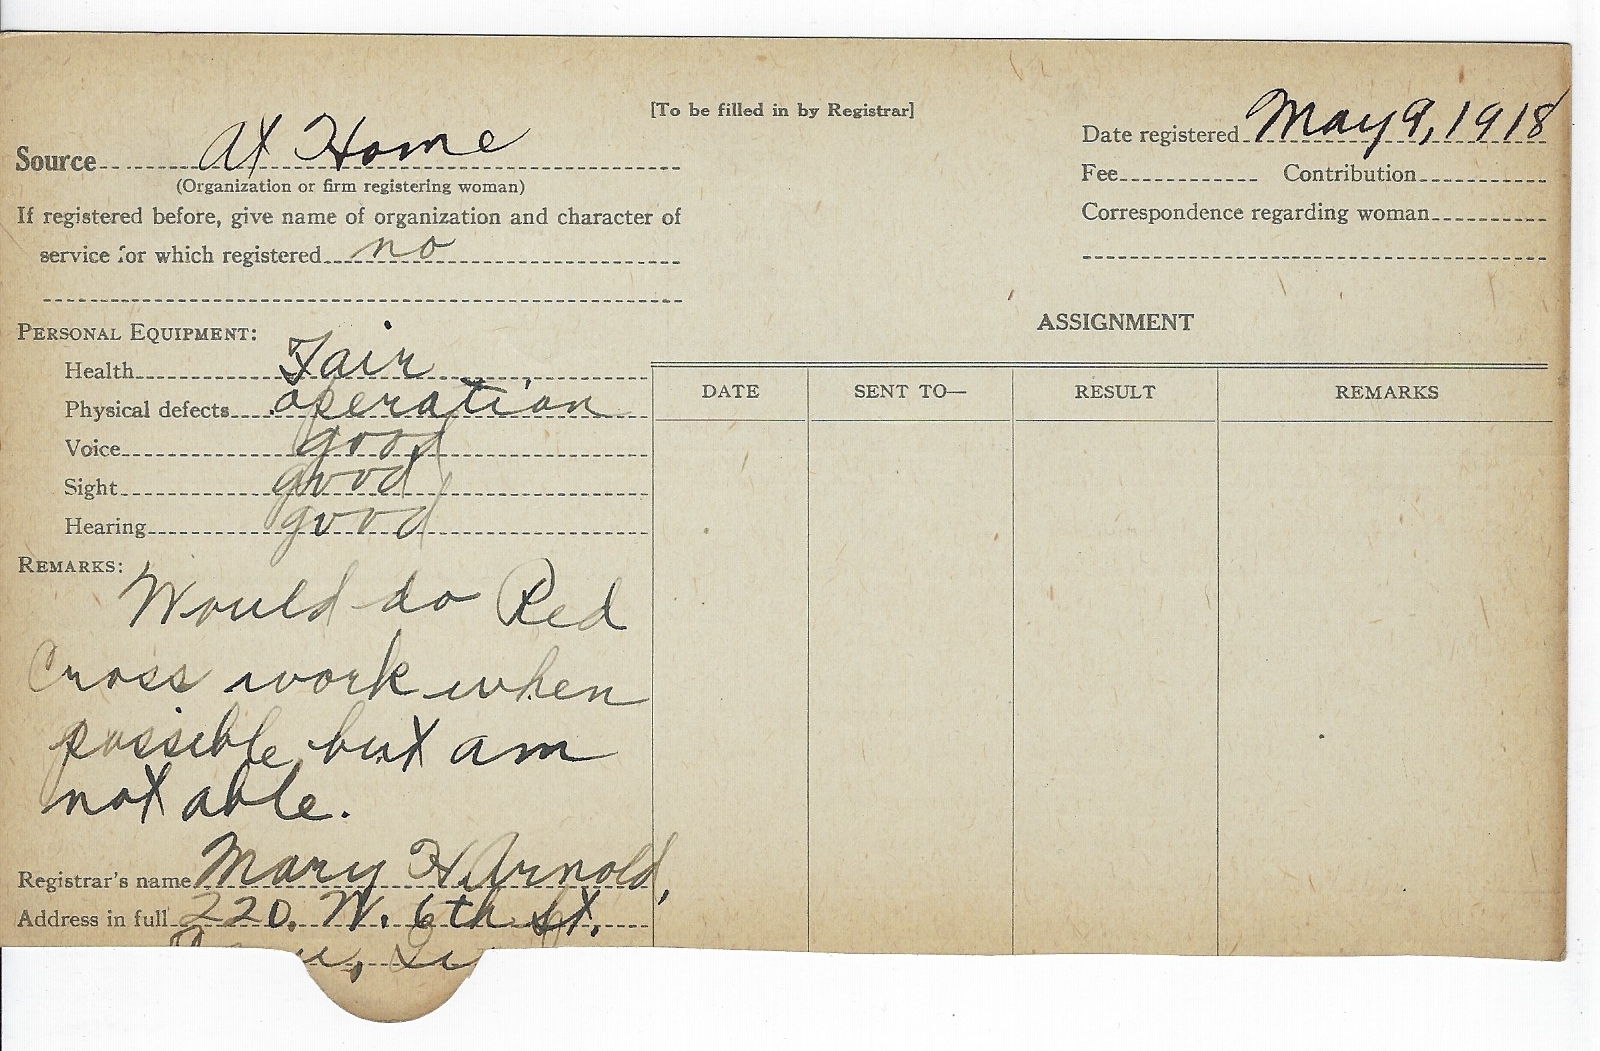 [To be filled in by Registrar]
Source At Home
(Organization or firm registering woman)
If registered before, give name of organization and character of
service for which registered no
Date registered May 9, 1918
Fee Contribution
Correspondence regarding woman
PERSONAL EQUIPMENT:
Health Fair
Physical defects operation
Voice good
Sight good
Hearing good
REMARKS:
Would do Red
Cross work when
possible but am
not able.
Registrar's name Mary H. Arnold,
Address in full 220. W. 6th St.
ASSIGNMENT
DATE SENT TO— RESULT REMARKS